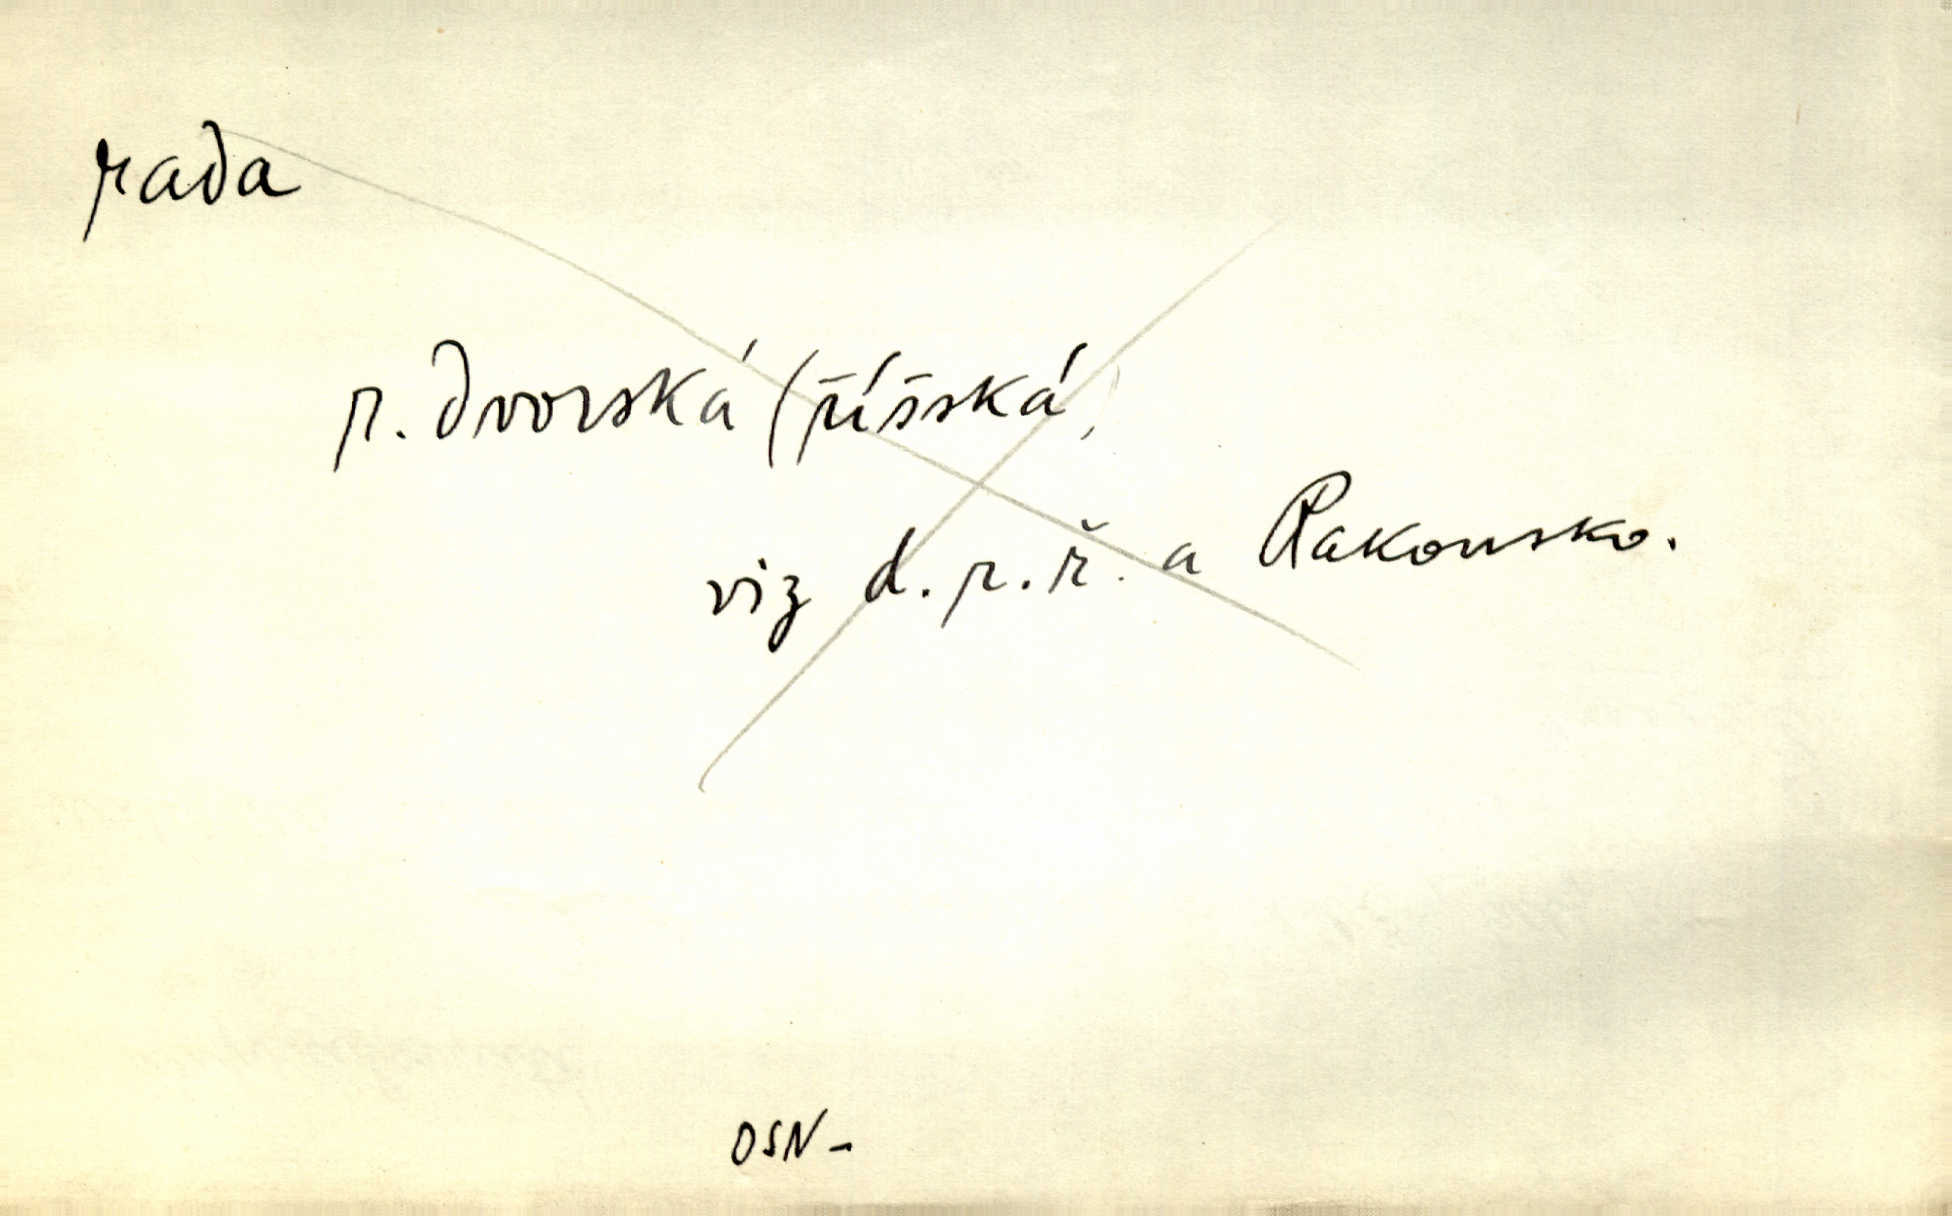 rada
r. dvorská (říšská)
viz d. r. ř. a Rakousko.
OSN -